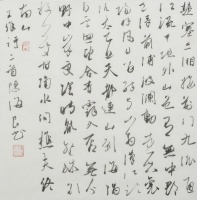 楚塞三湘接荆门九派通
江流天地外山色有无中郡
邑浮前浦波澜动远空襄
阳好风日留醉与山翁汉江
太乙近天都连山到海隅
白云回望合青霭入看无分
野中峰变阴晴众壑殊欲
投人处宿隔水问樵夫终
南山
王维诗二首陈海良书